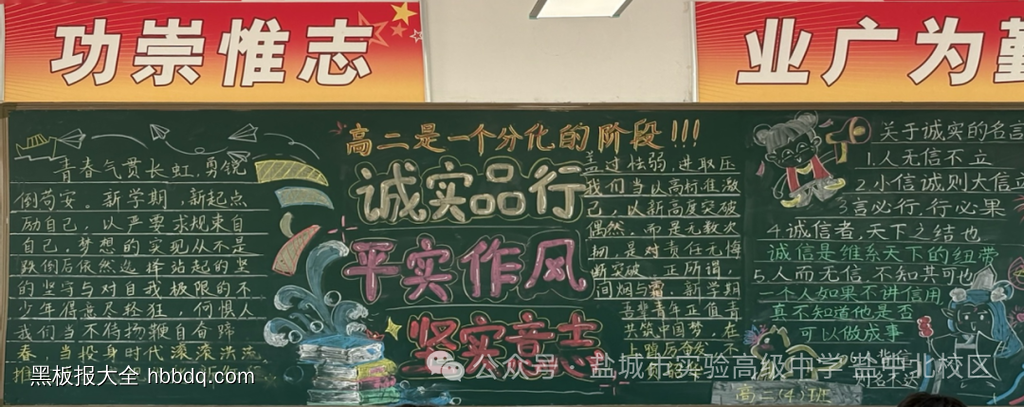 功崇惟志
业广为勤
高二是一个分化的阶段!!!
诚实品行
平实作风
坚实意志
青春气贯长虹,勇锐
盖过怯弱,进取压
倒苟安。新学期,新起点
我们当以高标准激
励自己,以严要求规束自
己,以新高度突破
自己。梦想的实现从不是
偶然,而是无数次
跌倒后依然选择站起的坚
的坚守与对自我极限的不
断突破。正所谓,
少年得意尽轻狂
间烟与
新学期
我们当不待扬鞭自奋蹄
吾辈青年正值青
春,当投身时代滚滚洪流
共筑中国梦,在
关于诚实的名言
1.人无信不立
2.小信诚则大信立
3言必行,行必果
4诚信者,天下之结也
诚信是维系天下的纽带
5.人而无信,不知其可也
一个人如果不讲信用
真不知道他是否
可以做成事
高二(4)班
公众号 盐城市实验高级中学 盐中北校区
黑板报大全 hbbdq.com